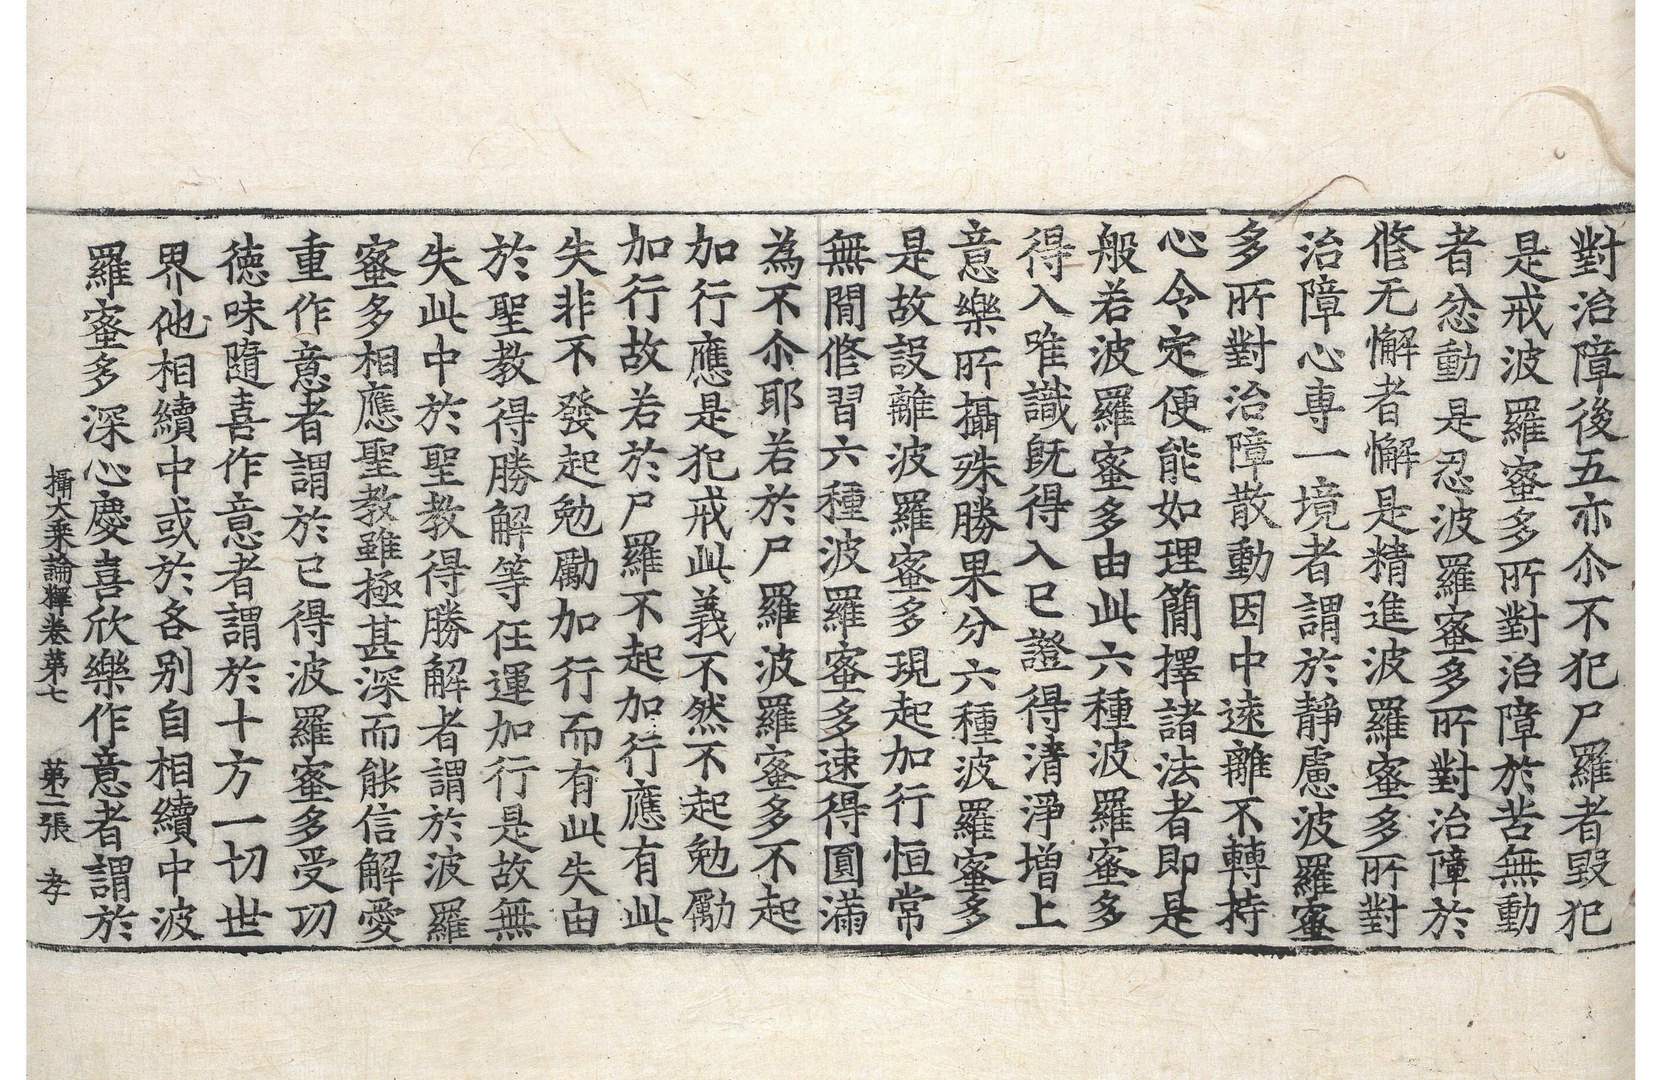 對治障後五亦尒不犯尸羅者毀犯
是戒波羅蜜多所對治障於苦無動
者忿動是忍波羅蜜多所對治障於
修无懈者懈是精進波羅蜜多所對
治障心專一境者謂於靜慮波羅蜜
多所對治障散動因中遠離不轉持
心令定便能如理簡擇諸法者即是
般若波羅蜜多由此六種波羅蜜多
得入唯識旣得入已證得清淨增上
意樂所攝殊勝果分六種波羅蜜多
是故設離波羅蜜多現起加行恒常
無間修習六種波羅蜜多速得圓滿
為不尒耶若於尸羅波羅蜜多不起
加行應是犯戒此義不然不起勉勵
加行故若於尸羅不起加行應有此
失非不發起勉勵加行而有此失由
於聖教得勝解等任運加行是故無
失此中於聖教得勝解者謂於波羅
蜜多相應聖教雖極甚深而能信解愛
重作意者謂於已得波羅蜜多受功
德味隨喜作意者謂於十方一切世
界他相續中或於各別自相續中波
羅蜜多深心慶喜欣樂作意者謂於
攝大乘論釋卷第七　第二張　孝